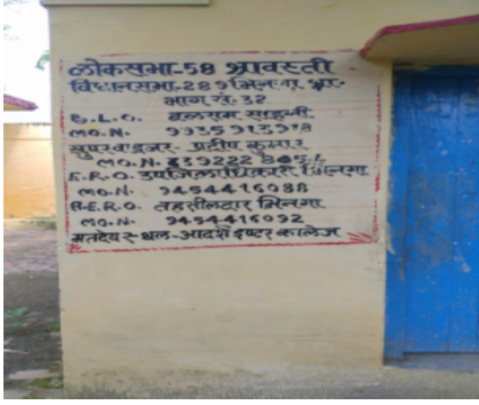 लोकसभा-58 श्रावस्ती
विधानसभा-289 भिनगा
भाग सं. 32
B.L.O. बलराम
MO.N. 9935913918
सुपरवाइजर- प्रदीप कुमार
MO.N.
E.R.O. उपजिलाधिकारी भिनगा
MO.N. 9454416088
A.E.R.O. तहसीलदार भिनगा
MO.N. 9454416092
मतदेय स्थल-आदर्श इण्टर कालेज